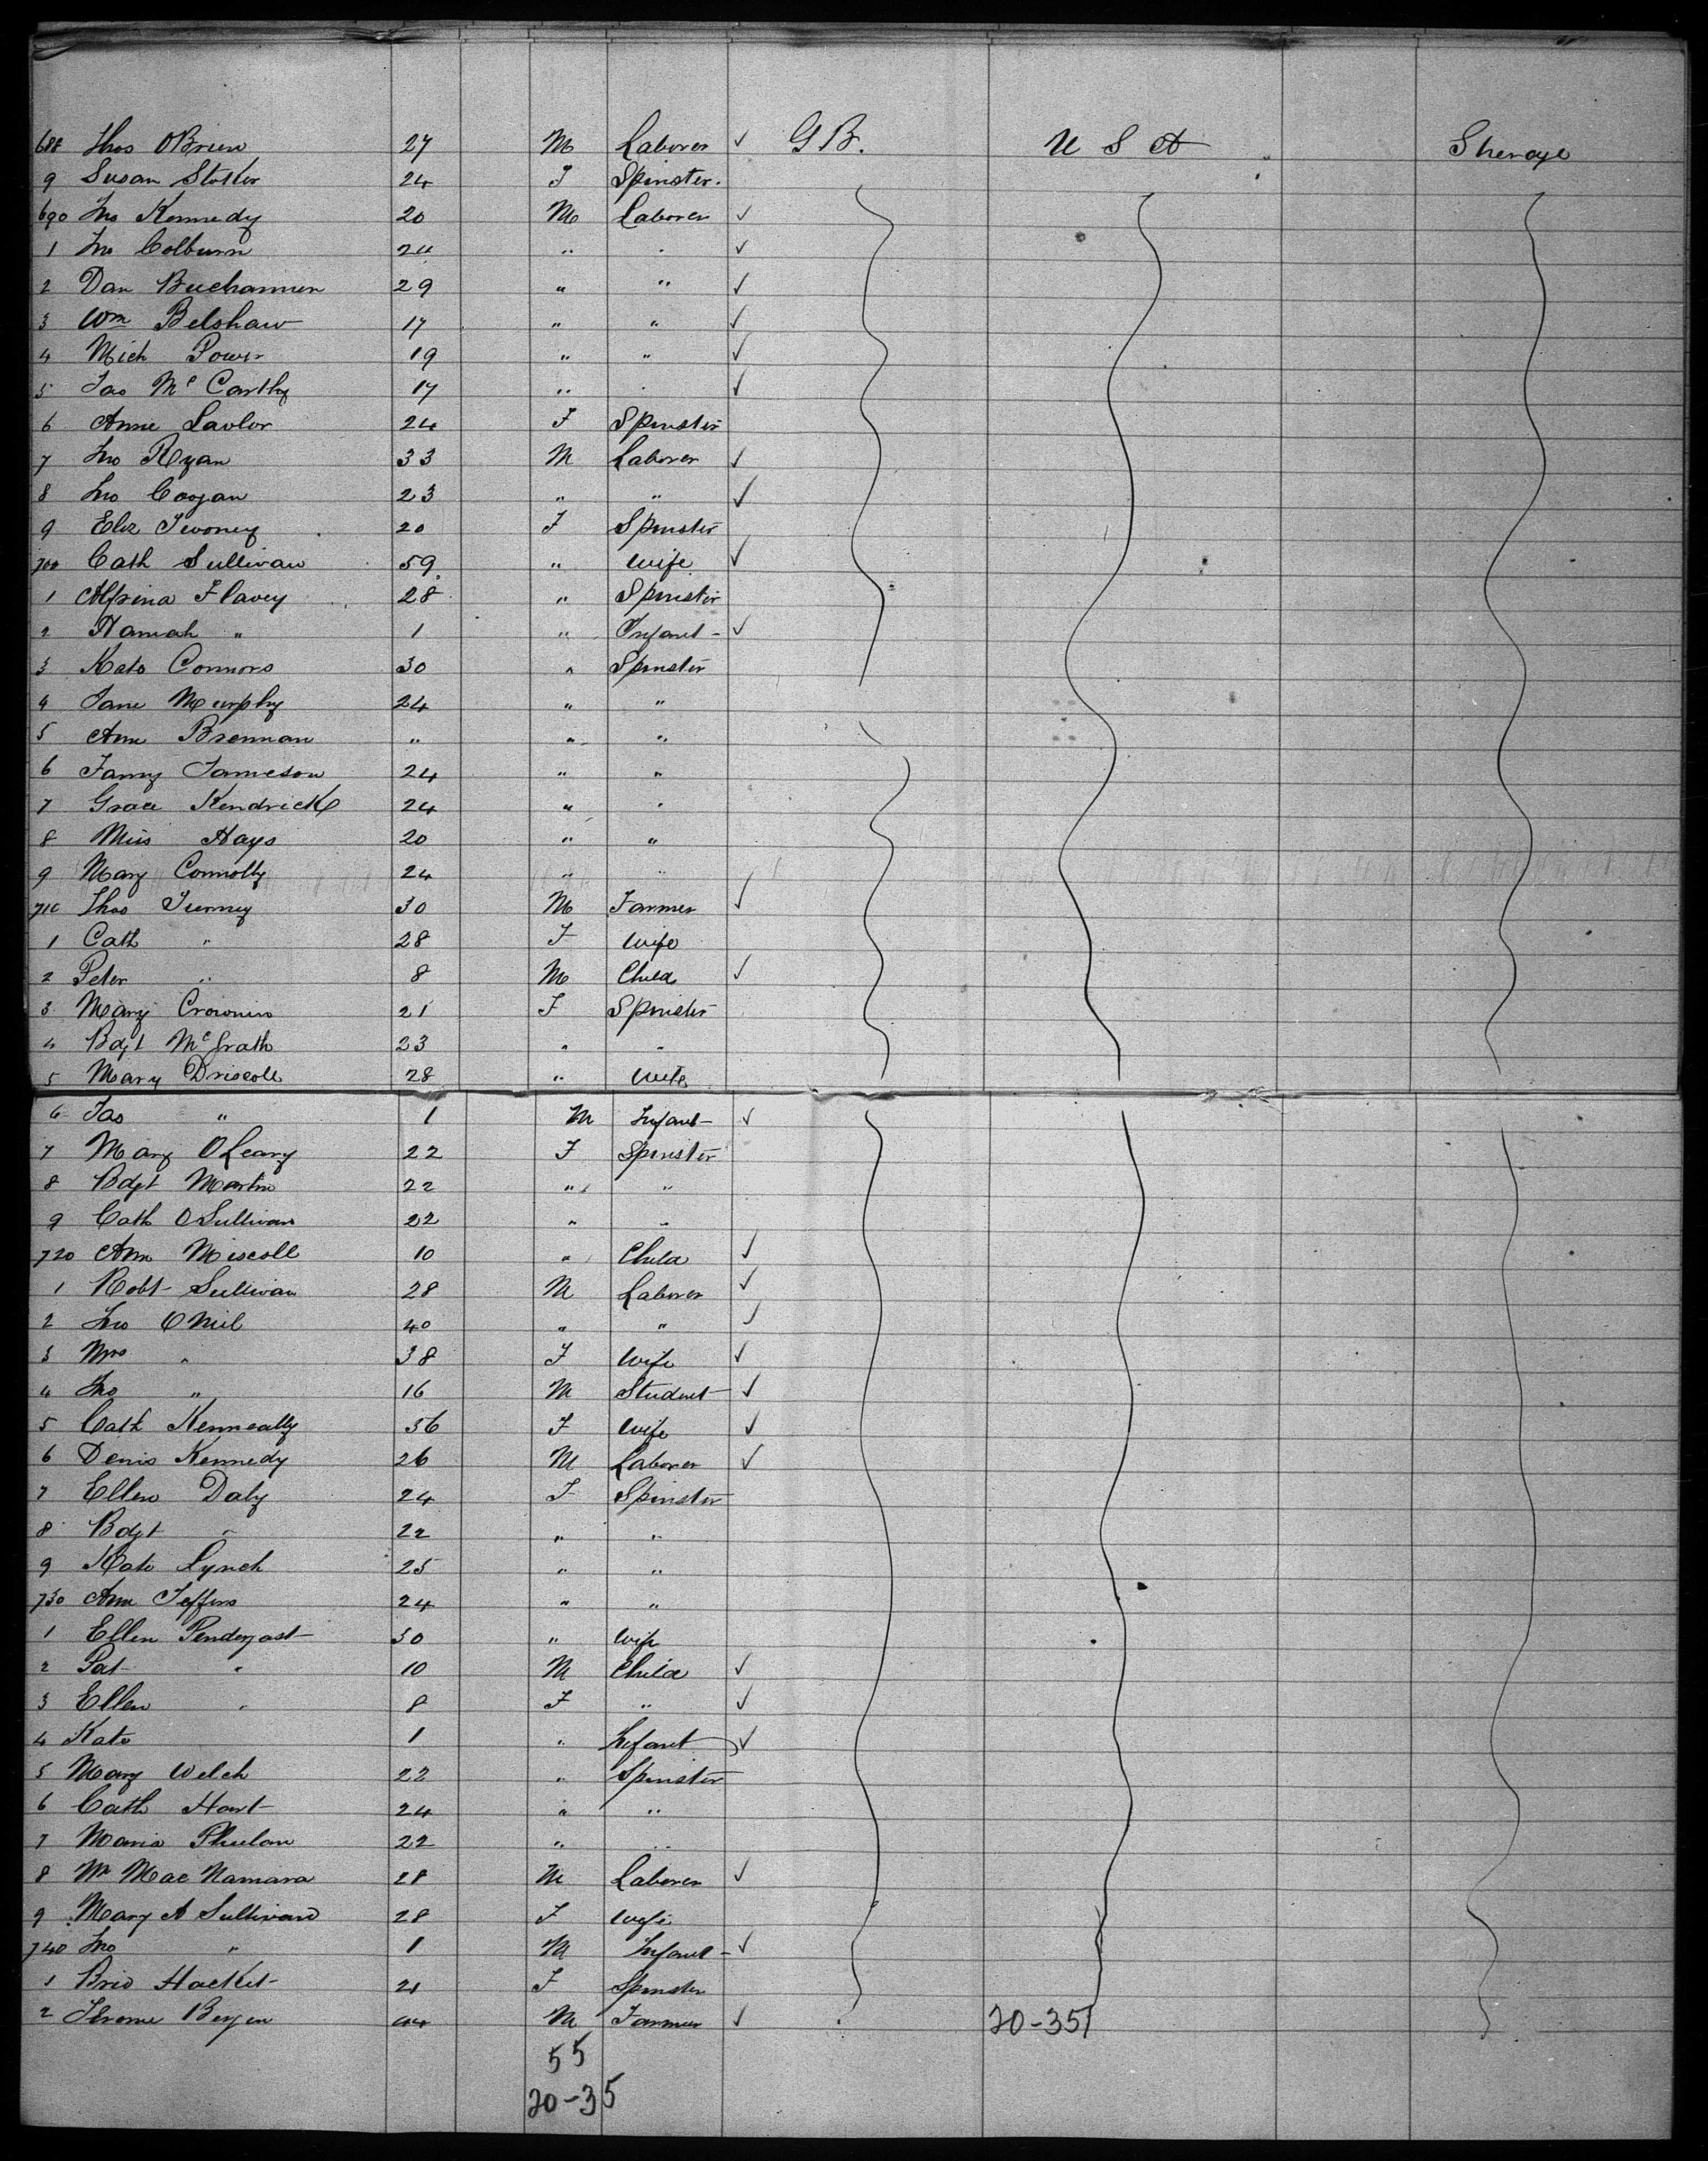 688 Thos OBrien 27 M Laborer ✓ G B. U S A Sterage
9 Susan Stotter 24 F Spinster.
690 Jno Kennedy 20 M Laborer ✓
1 Jno Colburn 24 " " ✓
2 Dan Buchannen 29 " " ✓
3 Wm Belshaw 17 " " ✓
4 Mich Power 19 " " ✓
5 Jas McCarthy 17 " " ✓
6 Anne Lawlor 24 F Spinster
7 Jno Ryan 33 M Laborer ✓
8 Jno Coogan 23 " " ✓
9 Eliz Twoney 20 F Spinster
700 Cath Sullivan 59 " Wife ✓
1 Flavey 28 " Spinster
2 Hannah " 1 " Infant ✓
3 Kate Connors 30 " Spinster
4 Jane Murphy 24 " "
5 Ann Brennan " " "
6 Fanny Jameson 24 " "
7 Grace Kendrick 24 " "
8 Miss Hays 20 " "
9 Mary Connolly 24 " "
710 Thos Tierney 30 M Farmer ✓
1 Cath " 28 F Wife
2 Peter " 8 M Child ✓
3 Mary Cronnin 21 F Spinster
4 Bdgt McGrath 23 " "
5 Mary Driscoll 28 " Wife
6 Jas " 1 M Infant ✓
7 Mary OLeary 22 F Spinster
8 Bdgt Martin 22 " "
9 Cath OSullivan 22 " "
720 Ann Miscoll 10 " Child ✓
1 Robt Sullivan 28 M Laborer ✓
2 Jno ONeil 40 " " ✓
3 Mrs " 38 F Wife ✓
4 Jno " 16 M Student ✓
5 Cath Kenneally 36 F Wife ✓
6 Denis Kennedy 26 M Laborer ✓
7 Ellen Daly 24 F Spinster
8 Bdgt " 22 " "
9 Kate Lynch 25 " "
730 Ann Jeffers 24 " "
1 Ellen Pendergast 30 " Wife
2 Pat " 10 M Child ✓
3 Ellen " 8 F " ✓
4 Kate 1 " Infant ✓
5 Mary Welch 22 " Spinster
6 Cath Hart 24 " "
7 Maria Phelan 22 " "
8 Mr Mac Namara 28 M Laborer ✓
9 Mary A Sullivan 28 F Wife
740 Jno " 1 M Infant ✓
1 Brid Hacket 21 F Spinster
2 Bergen 44 M Farmer ✓ 20-351
55
20-35